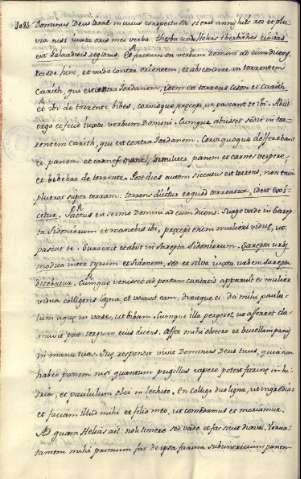 Dominus Deus Israel in cuius conspectu sto si erit annis his ros et plu
via nisi iuxta oris mei verba
Et factum est verbum Domini ad eum dicens
recede hinc, et vade contra orientem, et abscondere in torrente
Carith, qui est contra Jordanem,
et ibi de torrente bibes, corvisque præcepi, ut pascant te ibi. Abiit
ergo et fecit iuxta verbum Domini. Cumque abiisset sedit in tor
rente Carith, qui est contra Jordanem. Corvi quoque deferebant
ei panem et carnes mane, similiter panem et carnes vespere,
et bibebat de torrente. Post dies autem siccatus est torrens, non enim
pluerat super terram:
Factus est sermo Domini ad eum dicens: Surge vade in Sarep
ta Sidoniorum et manebis ibi, præcepi enim mulieri viduæ, ut
pascat te. Surrexit et abiit in Sarepta Sidoniorum.
media inter Tyrum et Sidonem,
dicebatur. Cumque venisset ad portam civitatis apparuit ei mulier
vidua colligens ligna, et vocavit eam, dixitque ei: da mihi paulu
lum aquæ in vase, ut bibam. Cumque illa pergeret, ut afferret cla
mavit post tergum eius dicens. Affer mihi obsecro et buccellam panis
in manu tua. Quæ respondit vivit Dominus Deus tuus, quia non
habeo panem nisi quantum pugillus capere potest farinæ in hi
dria, et paululum olei in lechito. En colligo duo ligna, ut ingrediar
et faciam illud mihi et filio meo, ut comedamus et moriamur.
Ad quam Helias ait. noli timere sed vade et fac sicut dixisti. Verum
tamen mihi primum fac de ipsa farina subcinericium panem